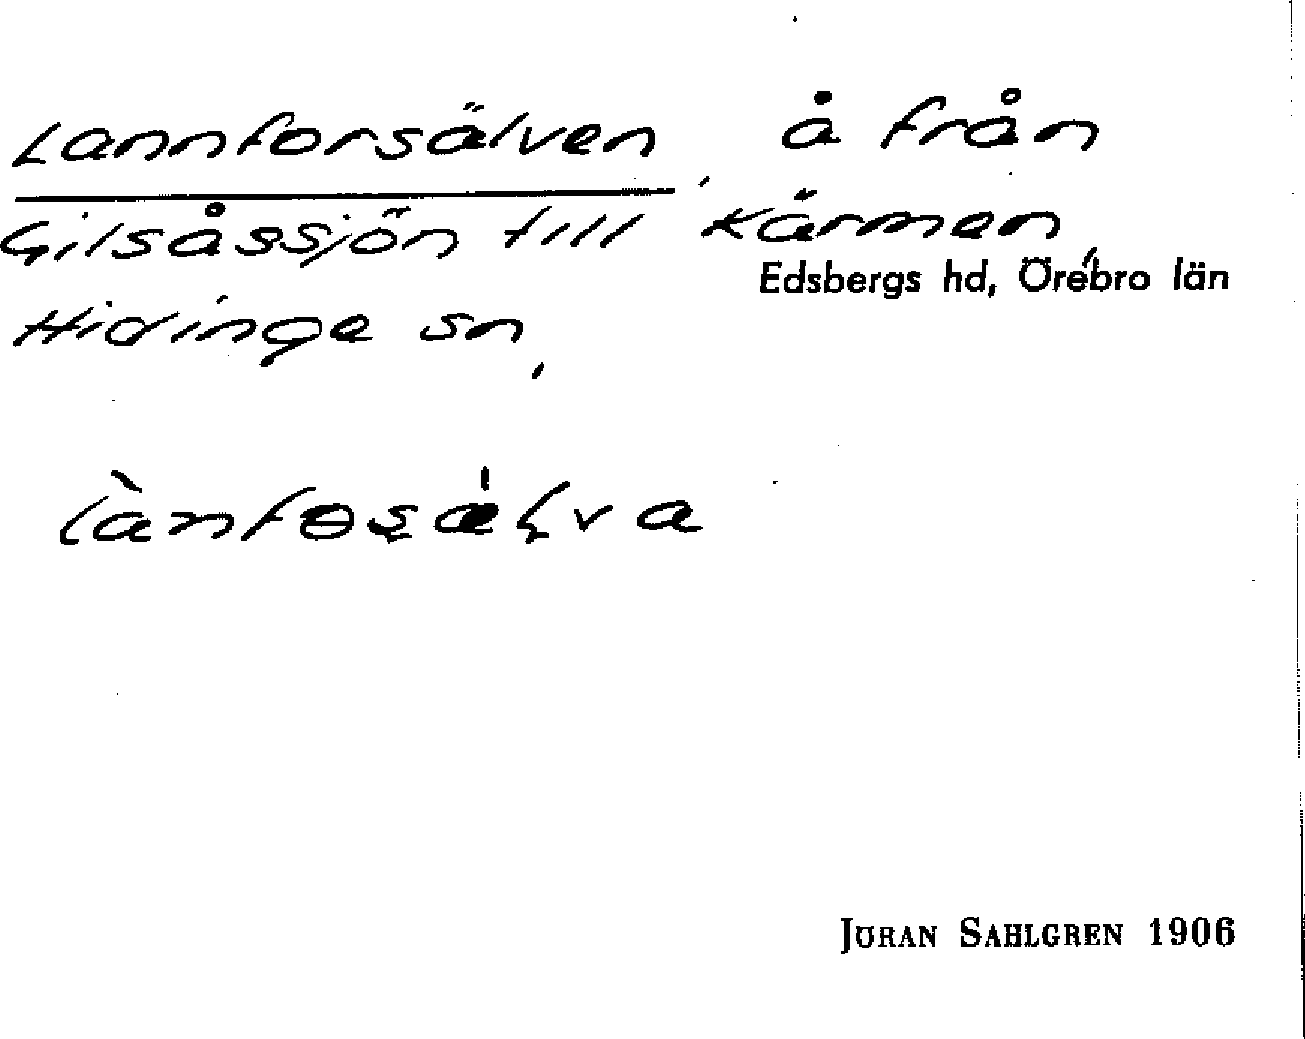 Lannforsälven, å från
Gilsåssjön till Kärmen,
Edsbergs hd, Örebro län
Hidinge sn,
JÖRAN SAHLGREN 1906